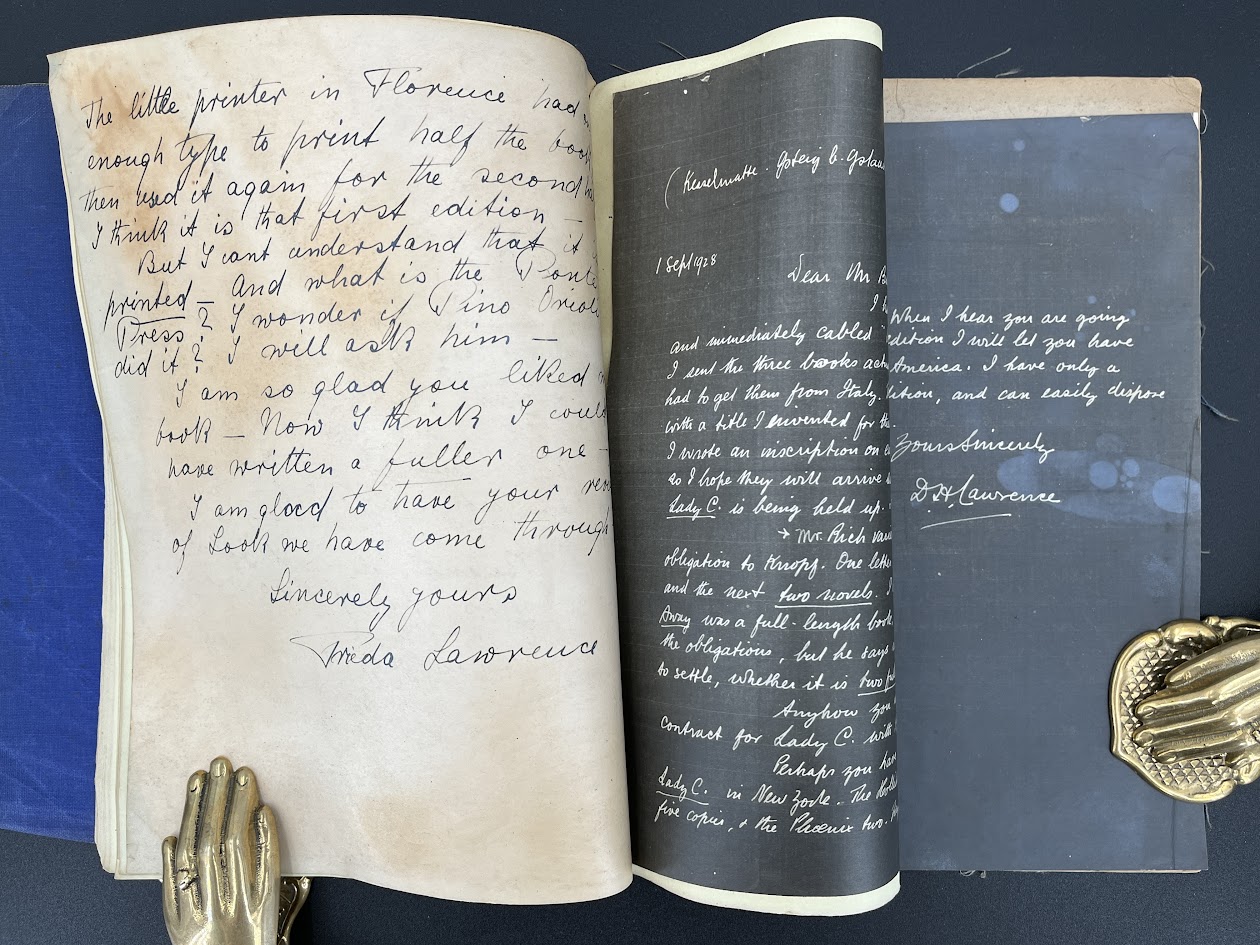 The little printer in Florence had
enough type to print half the book
then used it again for the second
I think it is that first edition —
But I cant understand that it
printed — And what is the Ponte
Press? I wonder if Pino Orioli
did it? I will ask him —
I am so glad you liked
book — Now I think I could
have written a fuller one —
I am glad to have your
of Look we have come through
Sincerely yours
Frieda Lawrence
(Kesselmatte. Gsteig b. Gstaad
1 Sept 1928
Dear Mr
I
and immediately cabled
I sent the three books
had to get them from Italy.
with a title I invented for
I wrote an inscription on
so I hope they will arrive
Lady C. is being held up.
→ Mr. Rich
obligation to Knopf. One letter
and the next two novels. I
Away was a full-length book
the obligations, but he says
to settle, whether it is two
Anyhow you
contract for Lady C. with
Perhaps you have
Lady C. in New York. The
five copies, & the Phoenix two.
When I hear you are going
edition I will let you have
America. I have only a
and can easily dispose
Yours Sincerely
D. H. Lawrence